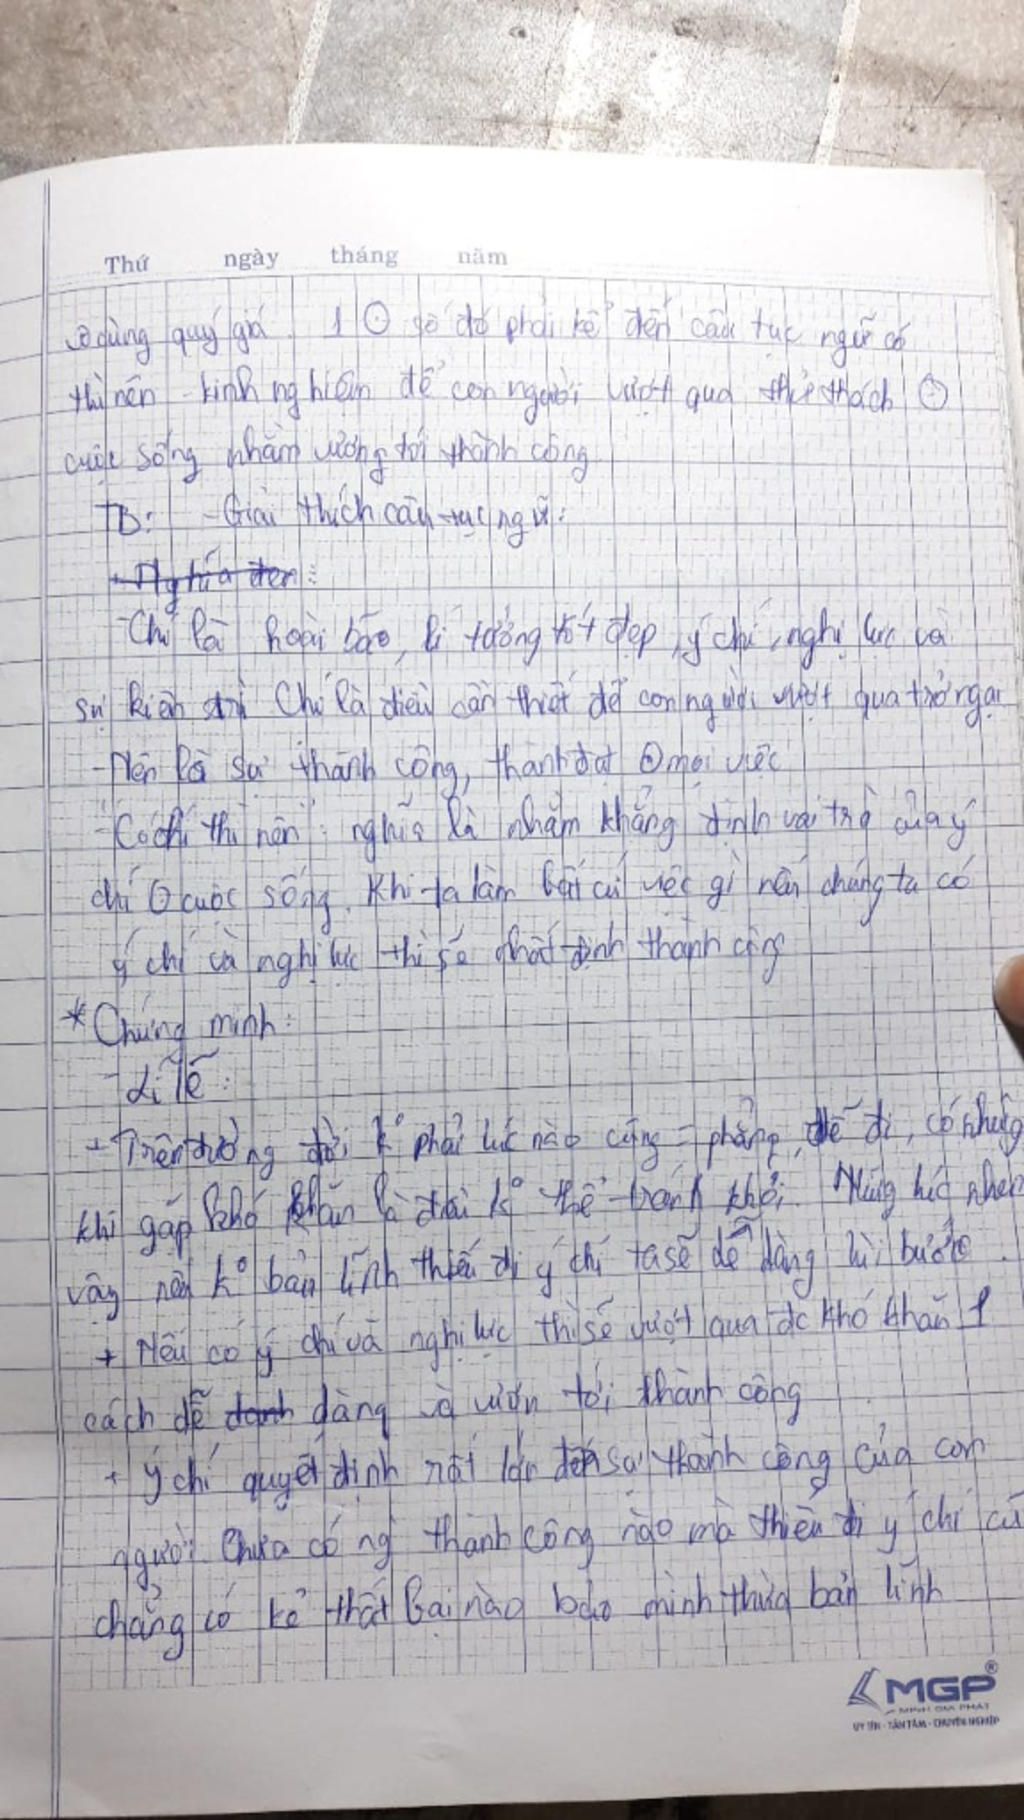 Thứ ngày tháng năm
vô cùng quý giá. 1 ⊙ số đó phải kể đến câu tục ngữ có
thì nên - kinh nghiệm để con người vượt qua thử thách ⊙
cuộc sống nhằm vươn tới thành công
TB: - Giải thích câu tục ngữ:
+ Nghĩa đen:
- Chí là hoài bão, lí tưởng tốt đẹp, ý chí, nghị lực và
sự kiên trì Chí là điều cần thiết để con người vượt qua trở ngại
- Nên là sự thành công, thành đạt ⊙ mọi việc
- Có chí thì nên: nghĩa là nhằm khẳng định vai trò của ý
chí ⊙ cuộc sống. Khi ta làm bất cứ việc gì nếu chúng ta có
ý chí và nghị lực thì sẽ nhất định thành công
* Chứng minh:
- Lí lẽ:
+ Trên đường đời k° phải lúc nào cũng = phẳng, dễ đi, có những
khi gặp khó khăn là điều k° thể tránh khỏi. Những lúc như
vậy nếu k° bản lĩnh thiếu đi ý chí ta sẽ dễ dàng lùi bước.
+ Nếu có ý chí và nghị lực thì sẽ vượt qua đc khó khăn 1
cách dễ danh dàng và vươn tới thành công
+ ý chí quyết định rất lớn đến sự thành công của con
người. Chưa có ng thành công nào mà thiếu đi ý chí cũ
chẳng có kẻ thất bại nào bảo mình thừa bản lĩnh
MGP®
MINH GIA PHÁT
UY TÍN - TẬN TÂM - CHUYÊN NGHIỆP